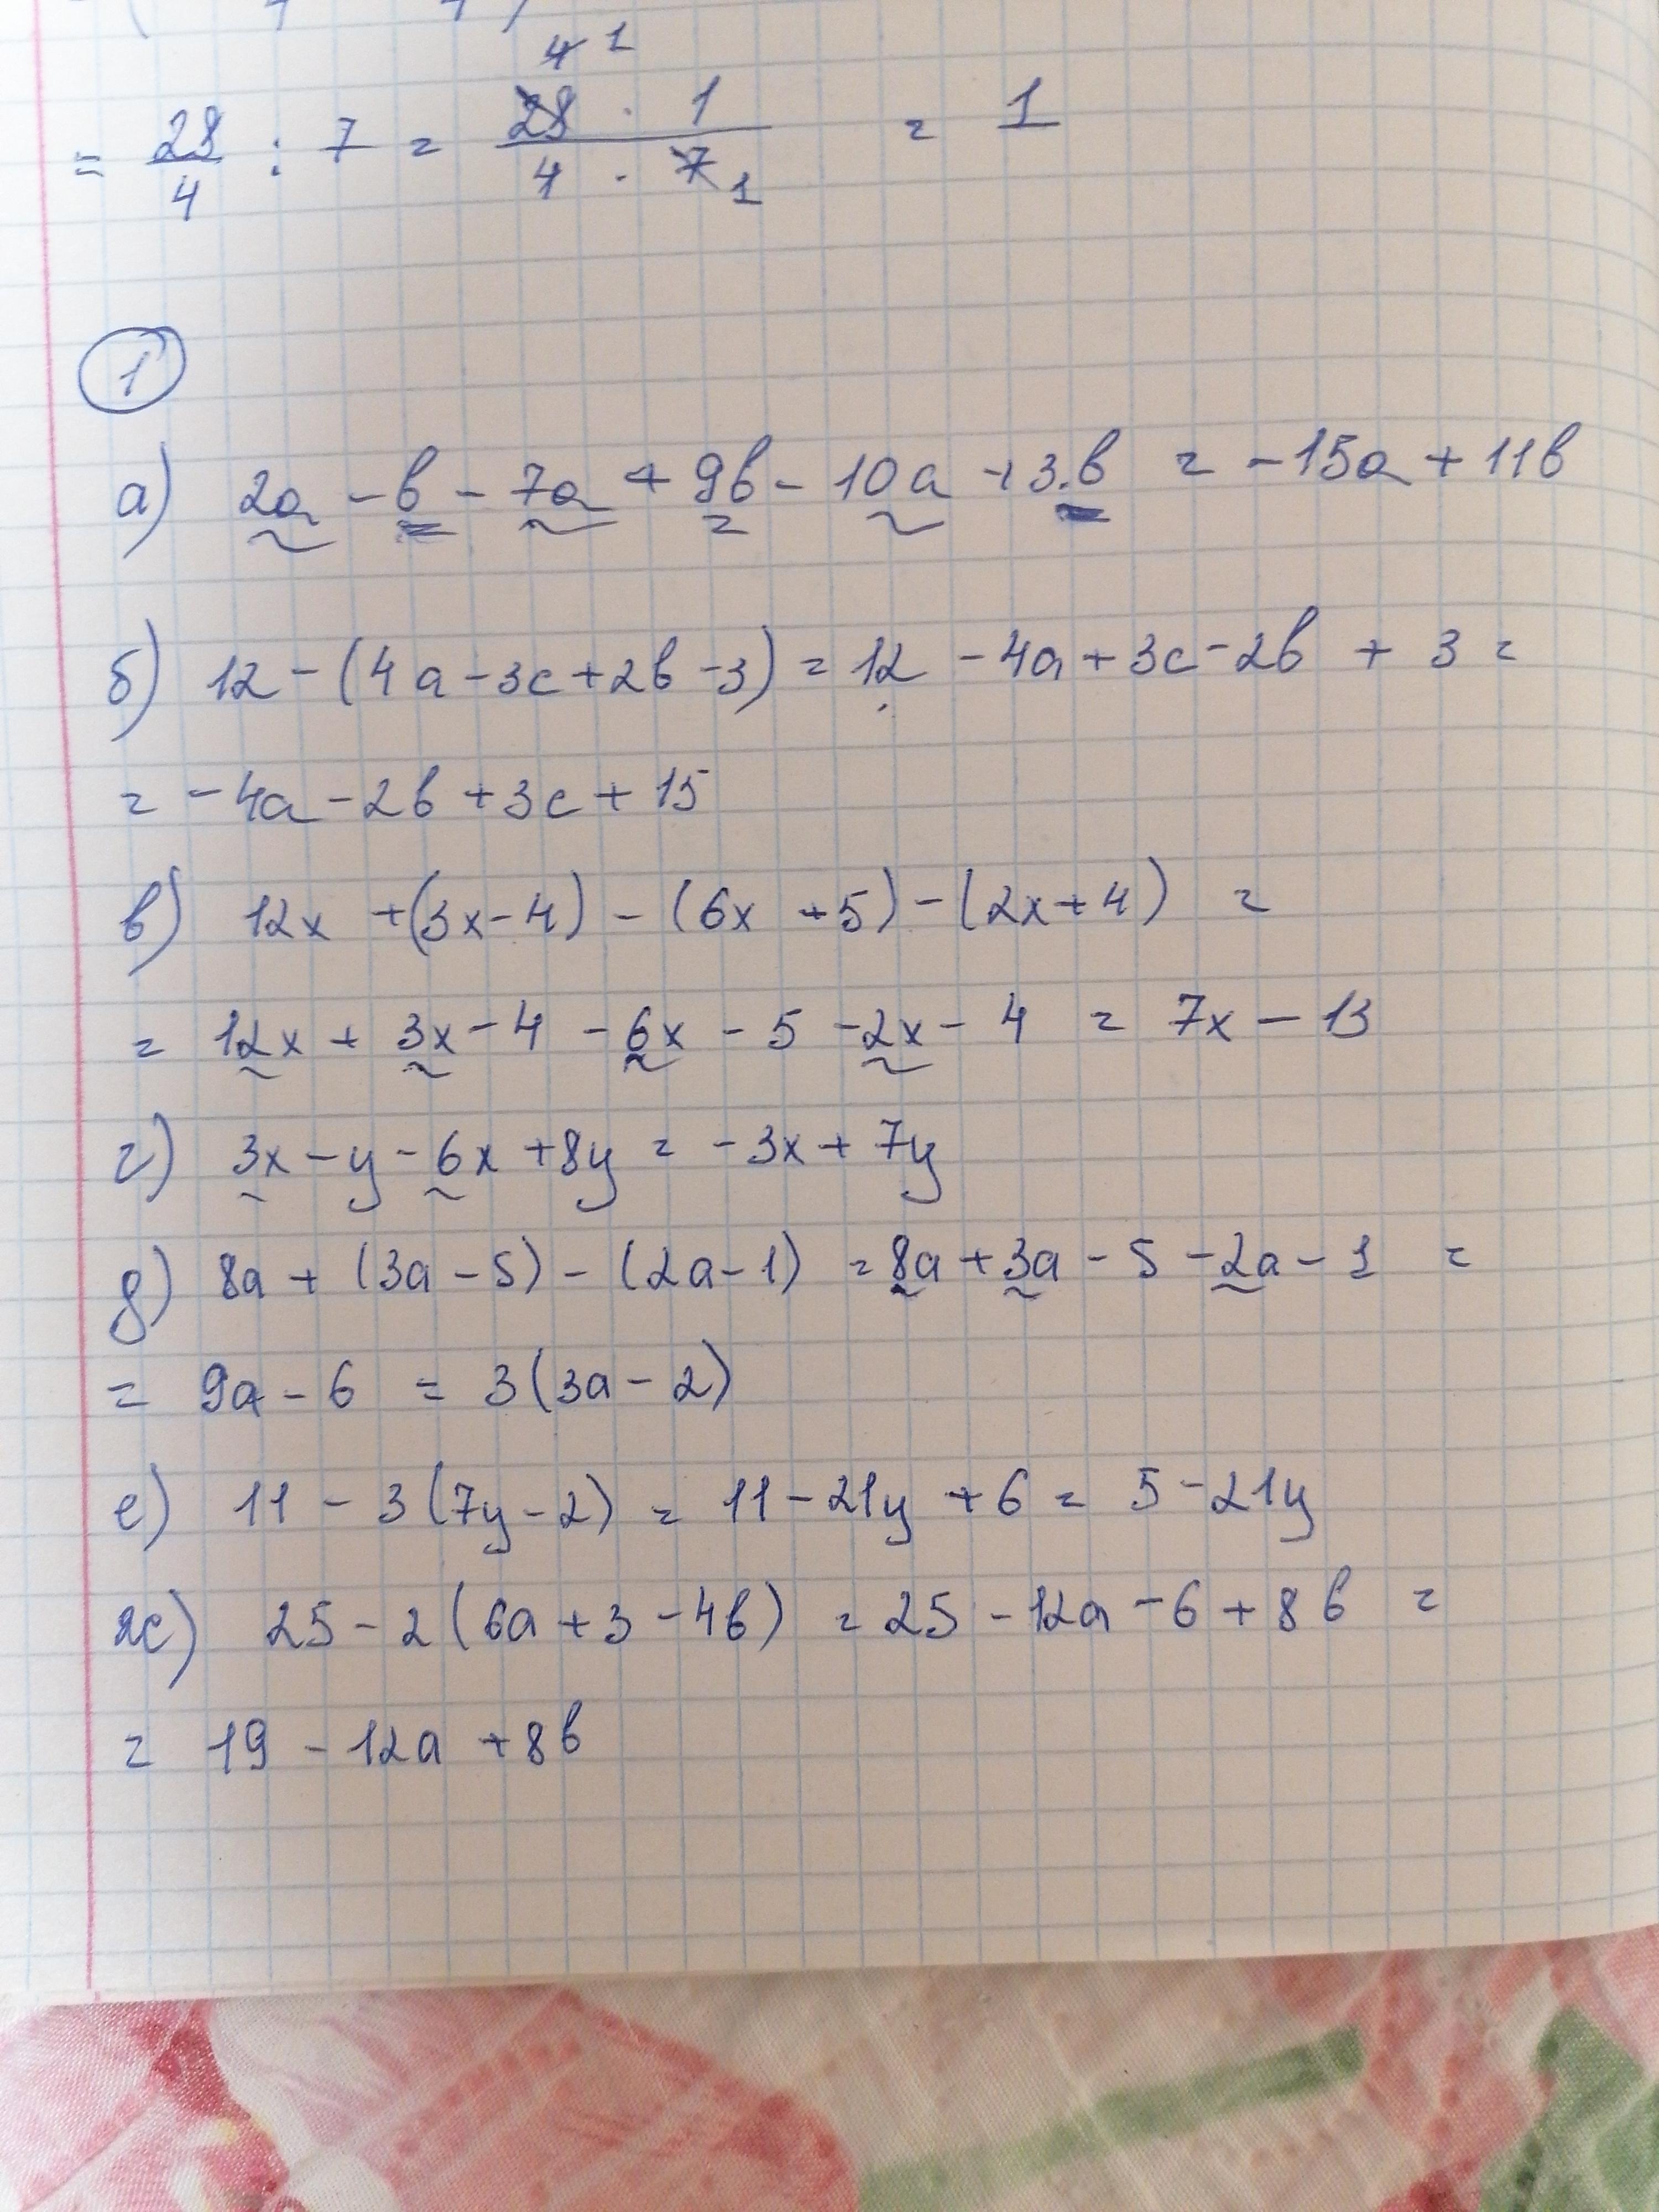 4 1
= 28/4 : 7 = 28 · 1 / 4 · 7 1 = 1
1
а) 2a - b - 7a + 9b - 10a + 3b = -15a + 11b
б) 12 - (4a - 3c + 2b - 3) = 12 - 4a + 3c - 2b + 3 =
= -4a - 2b + 3c + 15
в) 12x + (3x - 4) - (6x + 5) - (2x + 4) =
= 12x + 3x - 4 - 6x - 5 - 2x - 4 = 7x - 13
г) 3x - y - 6x + 8y = -3x + 7y
д) 8a + (3a - 5) - (2a - 1) = 8a + 3a - 5 - 2a - 1 =
= 9a - 6 = 3(3a - 2)
е) 11 - 3(7y - 2) = 11 - 21y + 6 = 5 - 21y
ж) 25 - 2(6a + 3 - 4b) = 25 - 12a - 6 + 8b =
= 19 - 12a + 8b